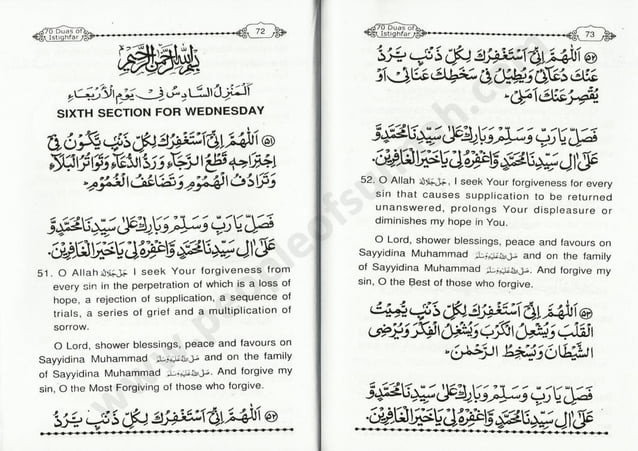 70 Duas of
Istighfar
72
بِسْمِ اللهِ الرَّحْمٰنِ الرَّحِيْمِ
اَلْمَنْزِلُ السَّادِسُ فِيْ يَوْمِ الْاَرْبِعَاءِ
SIXTH SECTION FOR WEDNESDAY
۵۱ اَللّٰهُمَّ اِنِّيْ اَسْتَغْفِرُكَ لِكُلِّ ذَنْبٍ يَّكُوْنُ فِيْ
اجْتِرَاحِهٖ قَطْعُ الرَّجَاءِ وَرَدُّ الدُّعَاءِ وَتَوَاتُرُ الْبَلَاءِ
وَتَرَادُفُ الْهُمُوْمِ وَتَضَاعُفُ الْغُمُوْمِ
فَصَلِّ يَا رَبِّ وَسَلِّمْ وَبَارِكْ عَلٰى سَيِّدِنَا مُحَمَّدٍ وَّ
عَلٰى اٰلِ سَيِّدِنَا مُحَمَّدٍ وَّاغْفِرْهُ لِيْ يَا خَيْرَ الْغَافِرِيْنَ
51. O Allah جل جلاله I seek Your forgiveness from
every sin in the perpetration of which is a loss of
hope, a rejection of supplication, a sequence of
trials, a series of grief and a multiplication of
sorrow.
O Lord, shower blessings, peace and favours on
Sayyidina Muhammad صلى الله عليه وسلم and on the family
of Sayyidina Muhammad صلى الله عليه وسلم. And forgive my
sin, O the Most Forgiving of those who forgive.
۵۲ اَللّٰهُمَّ اِنِّيْ اَسْتَغْفِرُكَ لِكُلِّ ذَنْبٍ يَّرُدُّ
73
70 Duas of
Istighfar
۵۲ اَللّٰهُمَّ اِنِّيْ اَسْتَغْفِرُكَ لِكُلِّ ذَنْبٍ يَّرُدُّ
عَنْكَ دُعَائِيْ وَيُطِيْلُ فِيْ سَخَطِكَ عَنَائِيْ اَوْ
يُقْصِرُ عَنْكَ اَمَلِيْ
فَصَلِّ يَا رَبِّ وَسَلِّمْ وَبَارِكْ عَلٰى سَيِّدِنَا مُحَمَّدٍ وَّ
عَلٰى اٰلِ سَيِّدِنَا مُحَمَّدٍ وَّاغْفِرْهُ لِيْ يَا خَيْرَ الْغَافِرِيْنَ
52. O Allah جل جلاله, I seek Your forgiveness for every
sin that causes supplication to be returned
unanswered, prolongs Your displeasure or
diminishes my hope in You.
O Lord, shower blessings, peace and favours on
Sayyidina Muhammad صلى الله عليه وسلم and on the family
of Sayyidina Muhammad صلى الله عليه وسلم. And forgive my
sin, O the Best of those who forgive.
۵۳ اَللّٰهُمَّ اِنِّيْ اَسْتَغْفِرُكَ لِكُلِّ ذَنْبٍ يُّمِيْتُ
الْقَلْبَ وَيُشْعِلُ الْكَرْبَ وَيُشْغِلُ الْفِكْرَ وَيُرْضِي
الشَّيْطَانَ وَيُسْخِطُ الرَّحْمٰنَ
فَصَلِّ يَا رَبِّ وَسَلِّمْ وَبَارِكْ عَلٰى سَيِّدِنَا مُحَمَّدٍ وَّ
عَلٰى اٰلِ سَيِّدِنَا مُحَمَّدٍ وَّاغْفِرْهُ لِيْ يَا خَيْرَ الْغَافِرِيْنَ